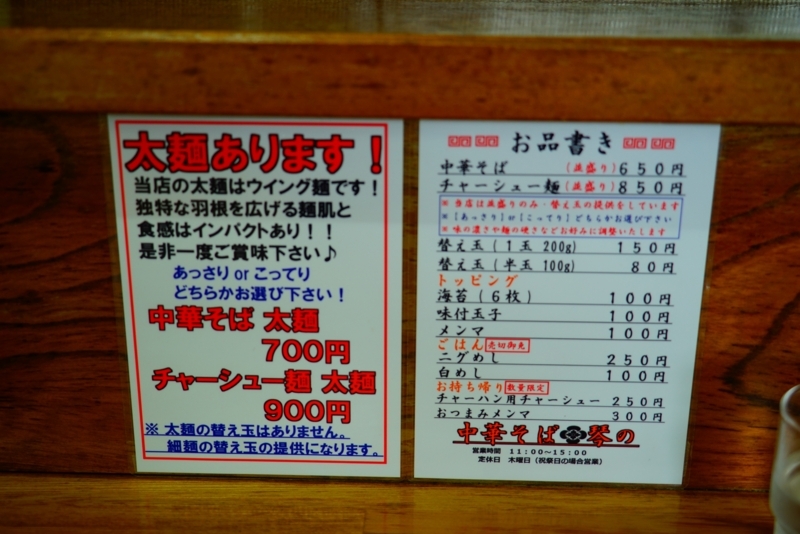 太麺あります！
当店の太麺はウイング麺です！
独特な羽根を広げる麺肌と
食感はインパクトあり！！
是非一度ご賞味下さい♪
あっさり or こってり
どちらかお選び下さい！
中華そば 太麺
700円
チャーシュー麺 太麺
900円
※ 太麺の替え玉はありません。
細麺の替え玉の提供になります。
お品書き
中華そば (並盛り) 650円
チャーシュー麺 (並盛り) 850円
※ 当店は並盛りのみ・替え玉の提供をしています
※ [あっさり] or [こってり] どちらかお選び下さい
※ 味の濃さや麺の硬さなどお好みに調整いたします
替え玉 (1玉 200g) 150円
替え玉 (半玉 100g) 80円
トッピング
海苔 (6枚) 100円
味付玉子 100円
メンマ 100円
ごはん 売切御免
ニグめし 250円
白めし 100円
お持ち帰り 数量限定
チャーハン用チャーシュー 250円
おつまみメンマ 300円
中華そば 琴の
営業時間 11:00〜15:00
定休日 木曜日 (祝祭日の場合営業)